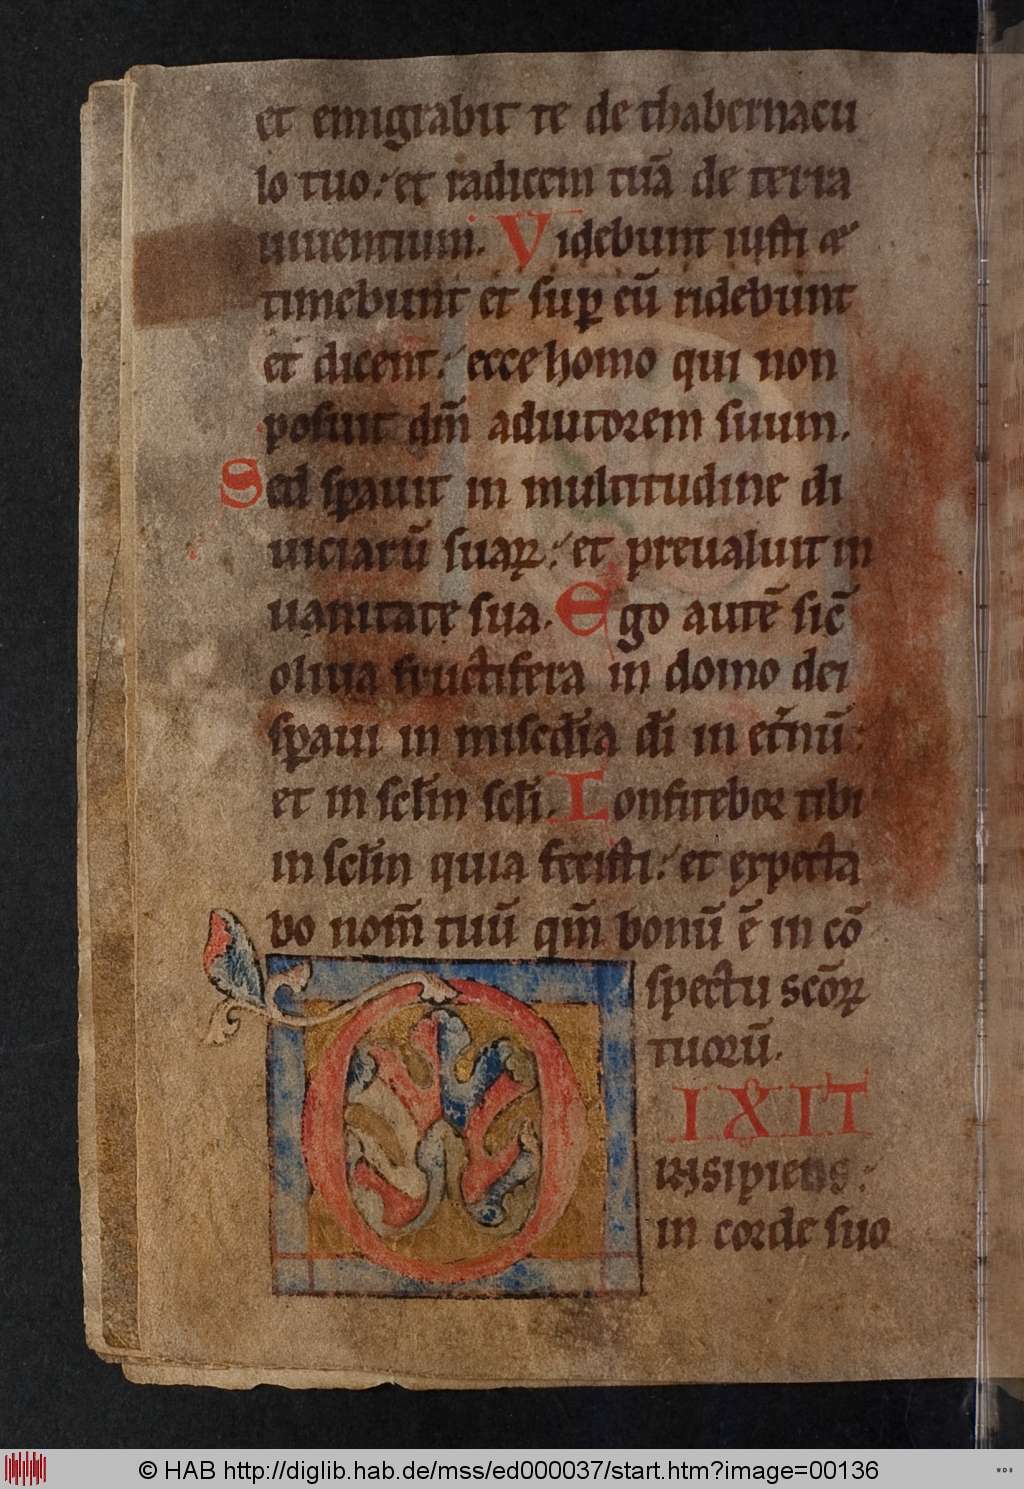 et emigrabit te de thabernacu
lo tuo. et radicem tuā de terra
uiuentium. Videbunt iusti &
timebunt et suꝑ eū ridebunt
et dicent. ecce homo qui non
posuit dm̄ adiutorem suum.
Sed sꝑauit in multitudine di
uiciarū suaꝝ. et preualuit in
uanitate sua. Ego autē sic̄
oliua fructifera in domo dei
sꝑaui in miscd̄ia dī in et̄nū.
et in scl̄m scl̄i. Confitebor tibi
in scl̄m quia fecisti. et expecta
bo nom̄ tuū qm̄ bonū ē in cō
spectu scōꝝ
tuorū.
DIXIT
insipiens.
in corde suo
© HAB http://diglib.hab.de/mss/ed000037/start.htm?image=00136